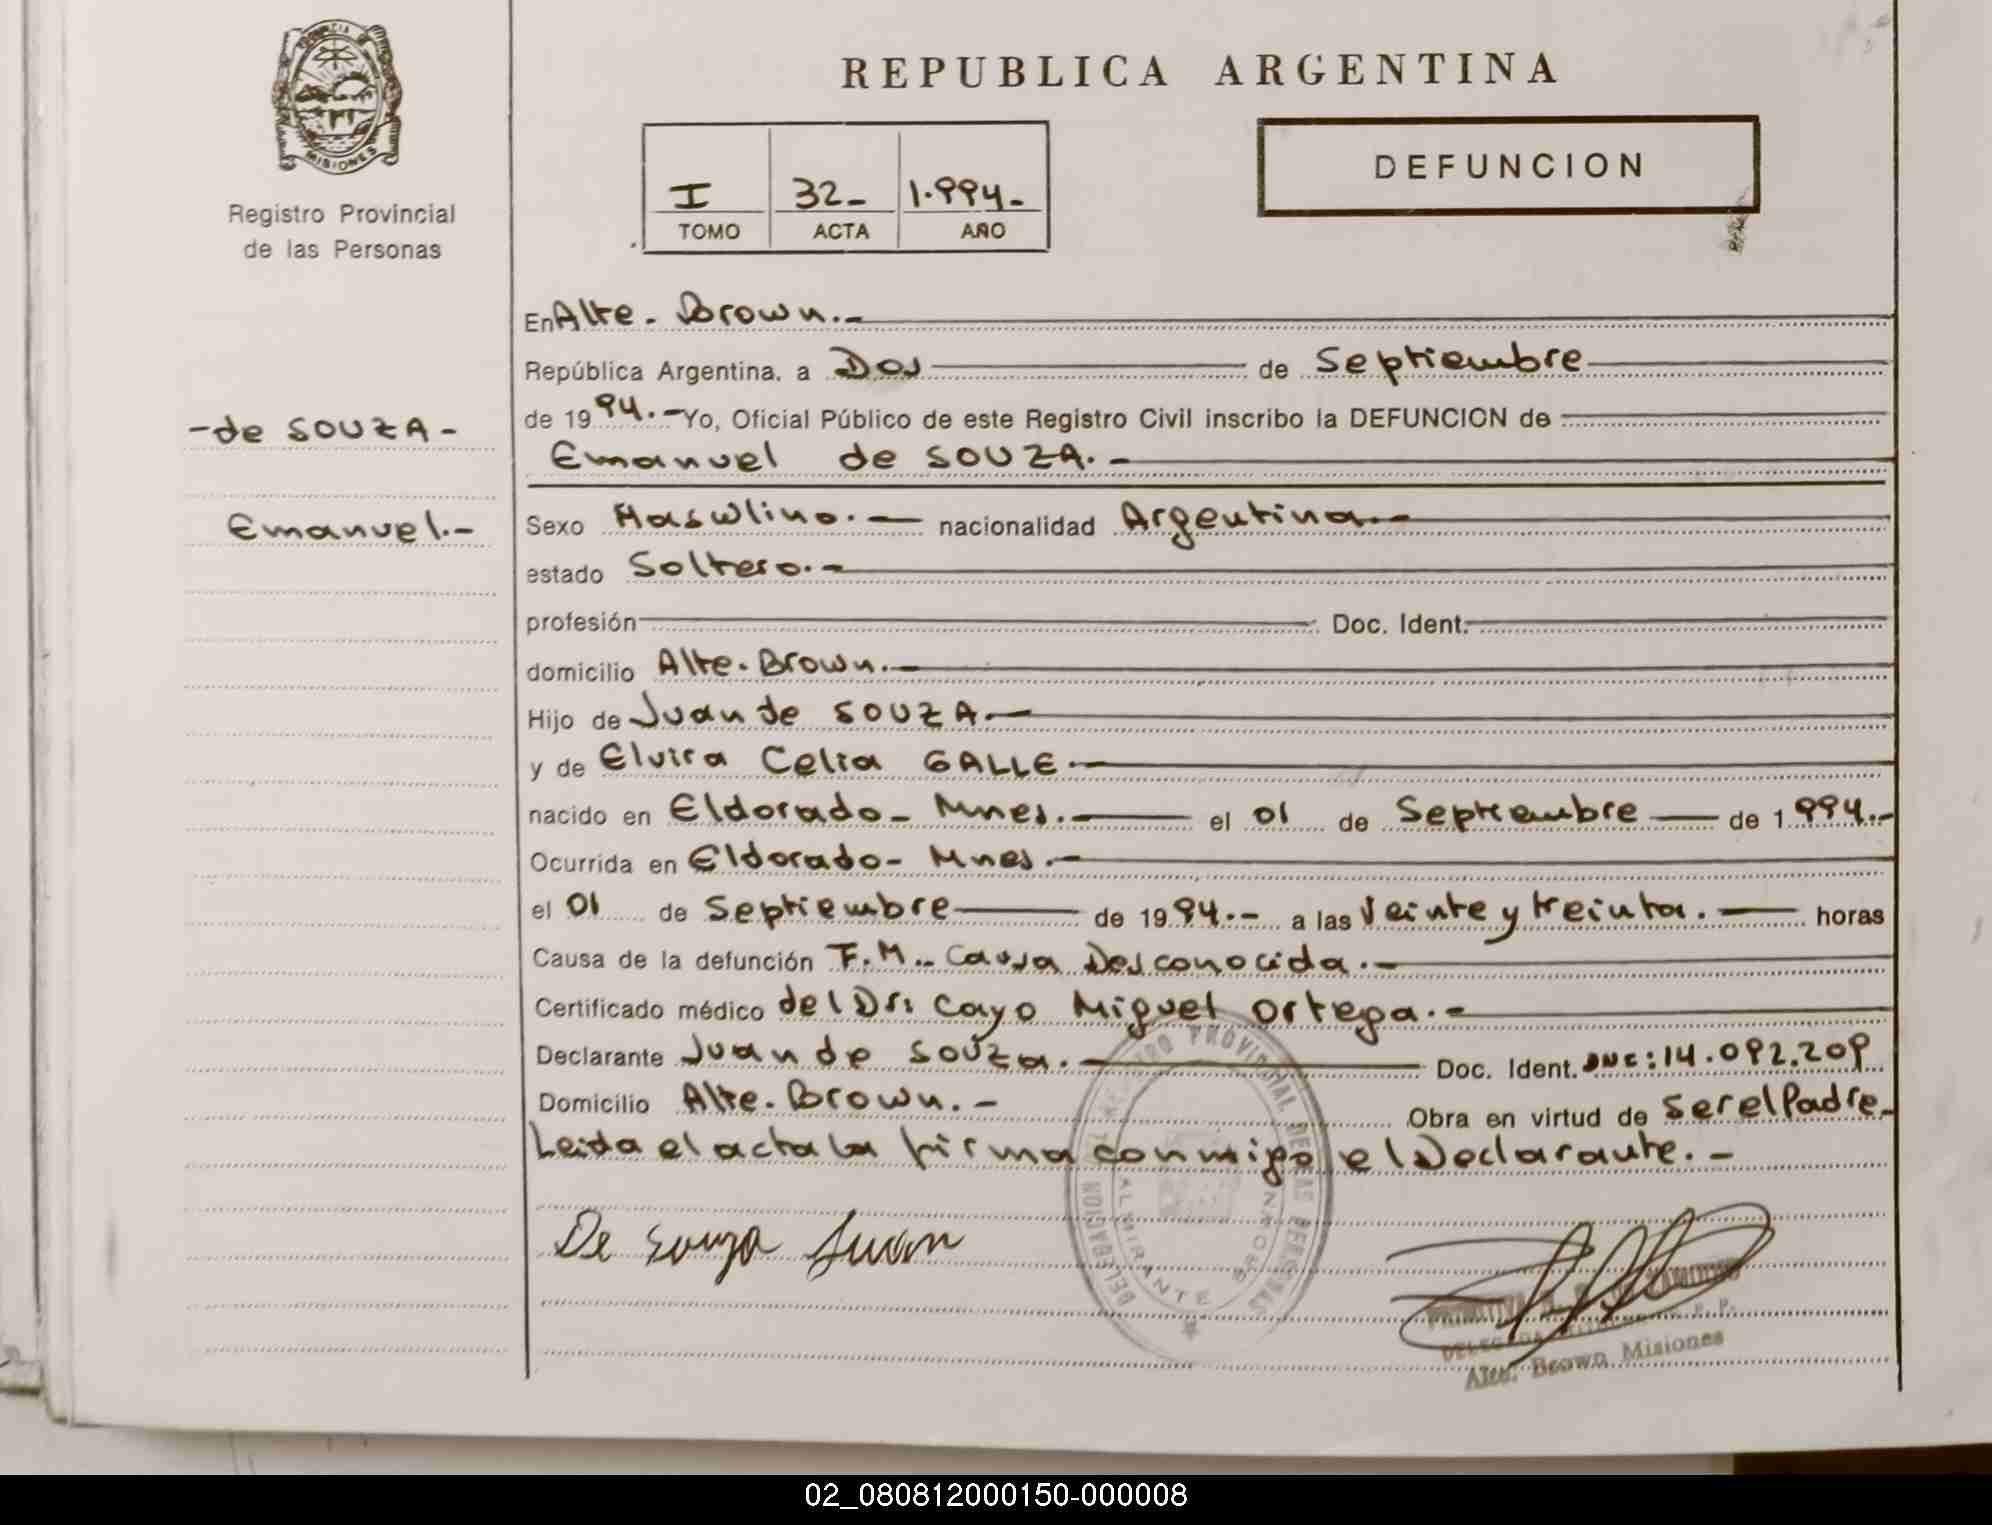 PROVINCIA
MISIONES
Registro Provincial
de las Personas
-de SOUZA-
Emanuel.-
REPUBLICA ARGENTINA
I 32- 1.994.-
TOMO ACTA AÑO
DEFUNCION
En Alte. Brown.-
República Argentina, a Dos de Septiembre
de 1994.- Yo, Oficial Público de este Registro Civil inscribo la DEFUNCION de
Emanuel de SOUZA.-
Sexo Masculino.- nacionalidad Argentina.-
estado Soltero.-
profesión Doc. Ident.
domicilio Alte. Brown.-
Hijo de Juan de SOUZA.-
y de Elvira Celia GALLE.-
nacido en Eldorado- Mnes.- el 01 de Septiembre de 1.994.-
Ocurrida en Eldorado- Mnes.-
el 01 de Septiembre de 1994.- a las Veinte y treinta.- horas
Causa de la defunción F.M.- Causa Desconocida.-
Certificado médico del Dr: Cayo Miguel Ortega.-
Declarante Juan de SOUZA.- Doc. Ident. DNI: 14.092.209
Domicilio Alte. Brown.- Obra en virtud de Ser el Padre-
Leida el acta la firma conmigo el Declarante.-
De Souza Juan
REGISTRO PROVINCIAL DE LAS PERSONAS
DELEGACION
ALMIRANTE BROWN
PRIMITIVA
DELEGADA
Alte. Brown Misiones
02_080812000150-000008